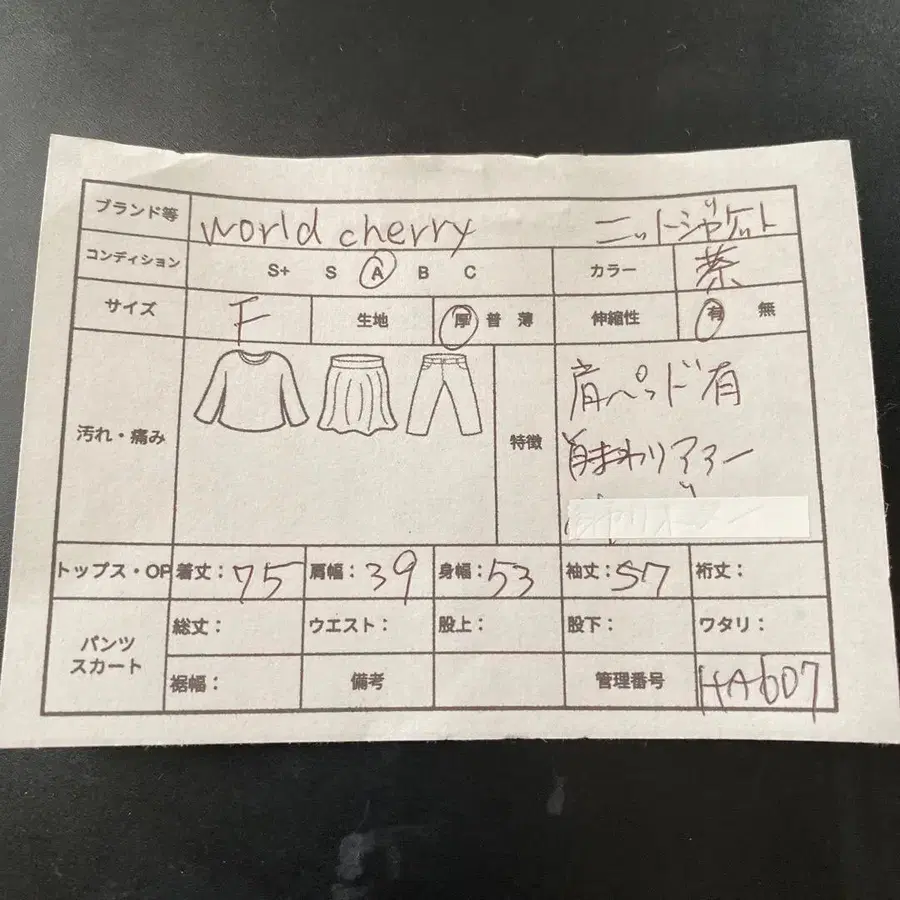 ブランド等 world cherry ニットジャケット
コンディション S+ S A B C カラー 茶
サイズ F 生地 厚 普 薄 伸縮性 有 無
汚れ・痛み 特徴 肩パッド有
首まわりファー
トップス・OP 着丈:75 肩幅:39 身幅:53 袖丈:57 裄丈:
パンツ スカート 総丈: ウエスト: 股上: 股下: ワタリ:
裾幅: 備考 管理番号 HA607